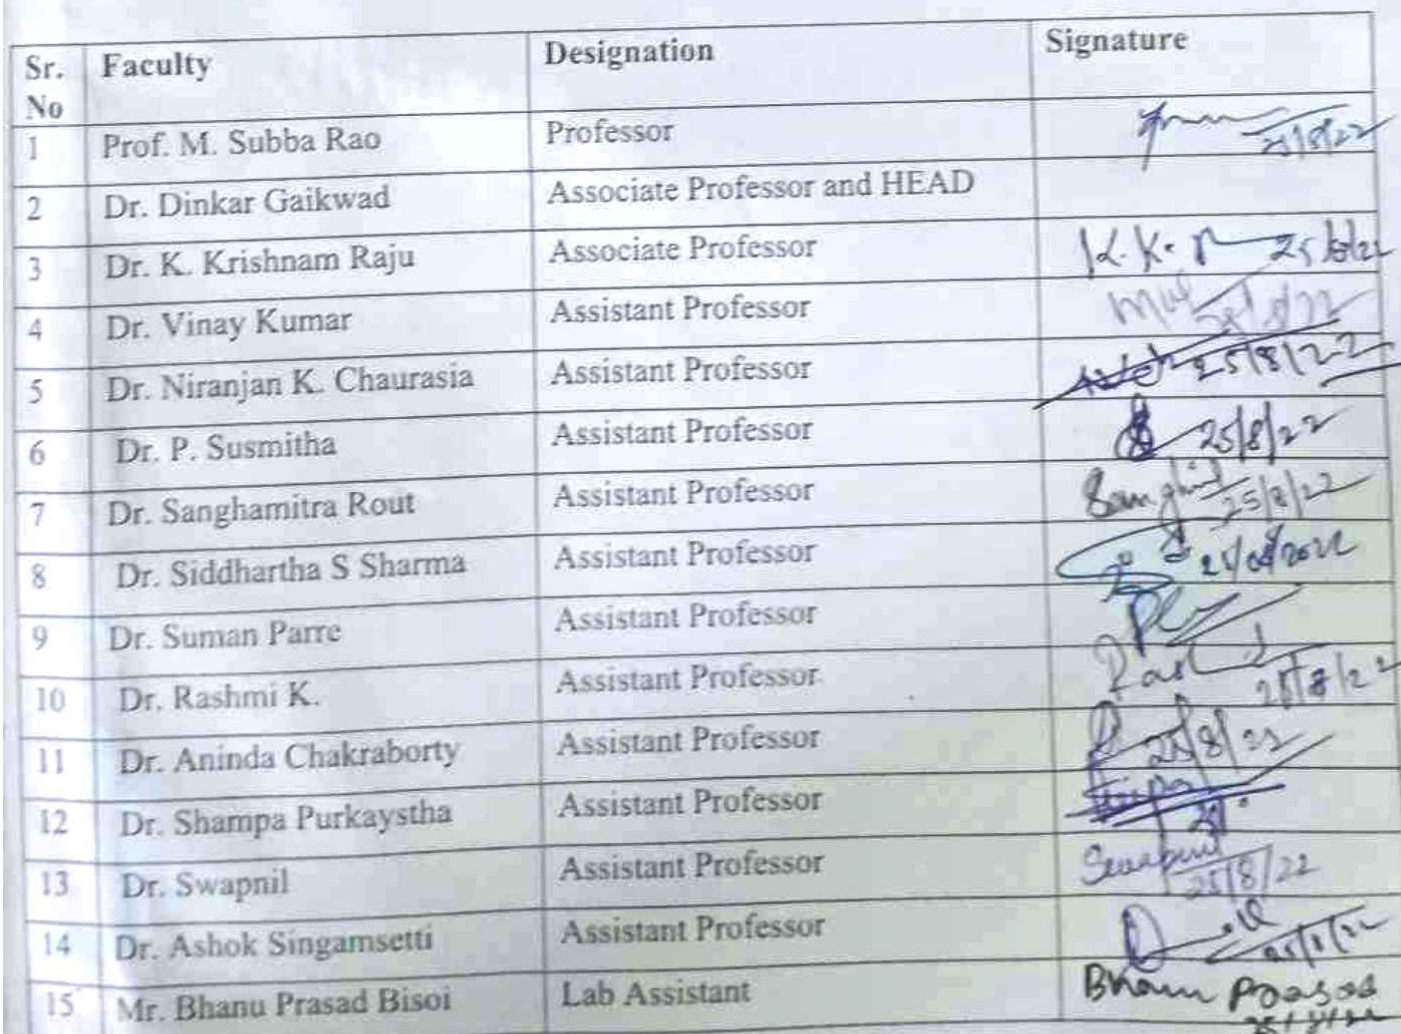 Sr. No Faculty Designation Signature
1 Prof. M. Subba Rao Professor 25/8/22
2 Dr. Dinkar Gaikwad Associate Professor and HEAD
3 Dr. K. Krishnam Raju Associate Professor K.K. 25/8/22
4 Dr. Vinay Kumar Assistant Professor
5 Dr. Niranjan K. Chaurasia Assistant Professor 25/8/22
6 Dr. P. Susmitha Assistant Professor 25/8/22
7 Dr. Sanghamitra Rout Assistant Professor 25/8/22
8 Dr. Siddhartha S Sharma Assistant Professor 25/08/2022
9 Dr. Suman Parre Assistant Professor
10 Dr. Rashmi K. Assistant Professor 25/8/22
11 Dr. Aninda Chakraborty Assistant Professor 25/8/22
12 Dr. Shampa Purkaystha Assistant Professor
13 Dr. Swapnil Assistant Professor Swapnil 25/8/22
14 Dr. Ashok Singamsetti Assistant Professor 25/8/22
15 Mr. Bhanu Prasad Bisoi Lab Assistant Bhanu Prasad